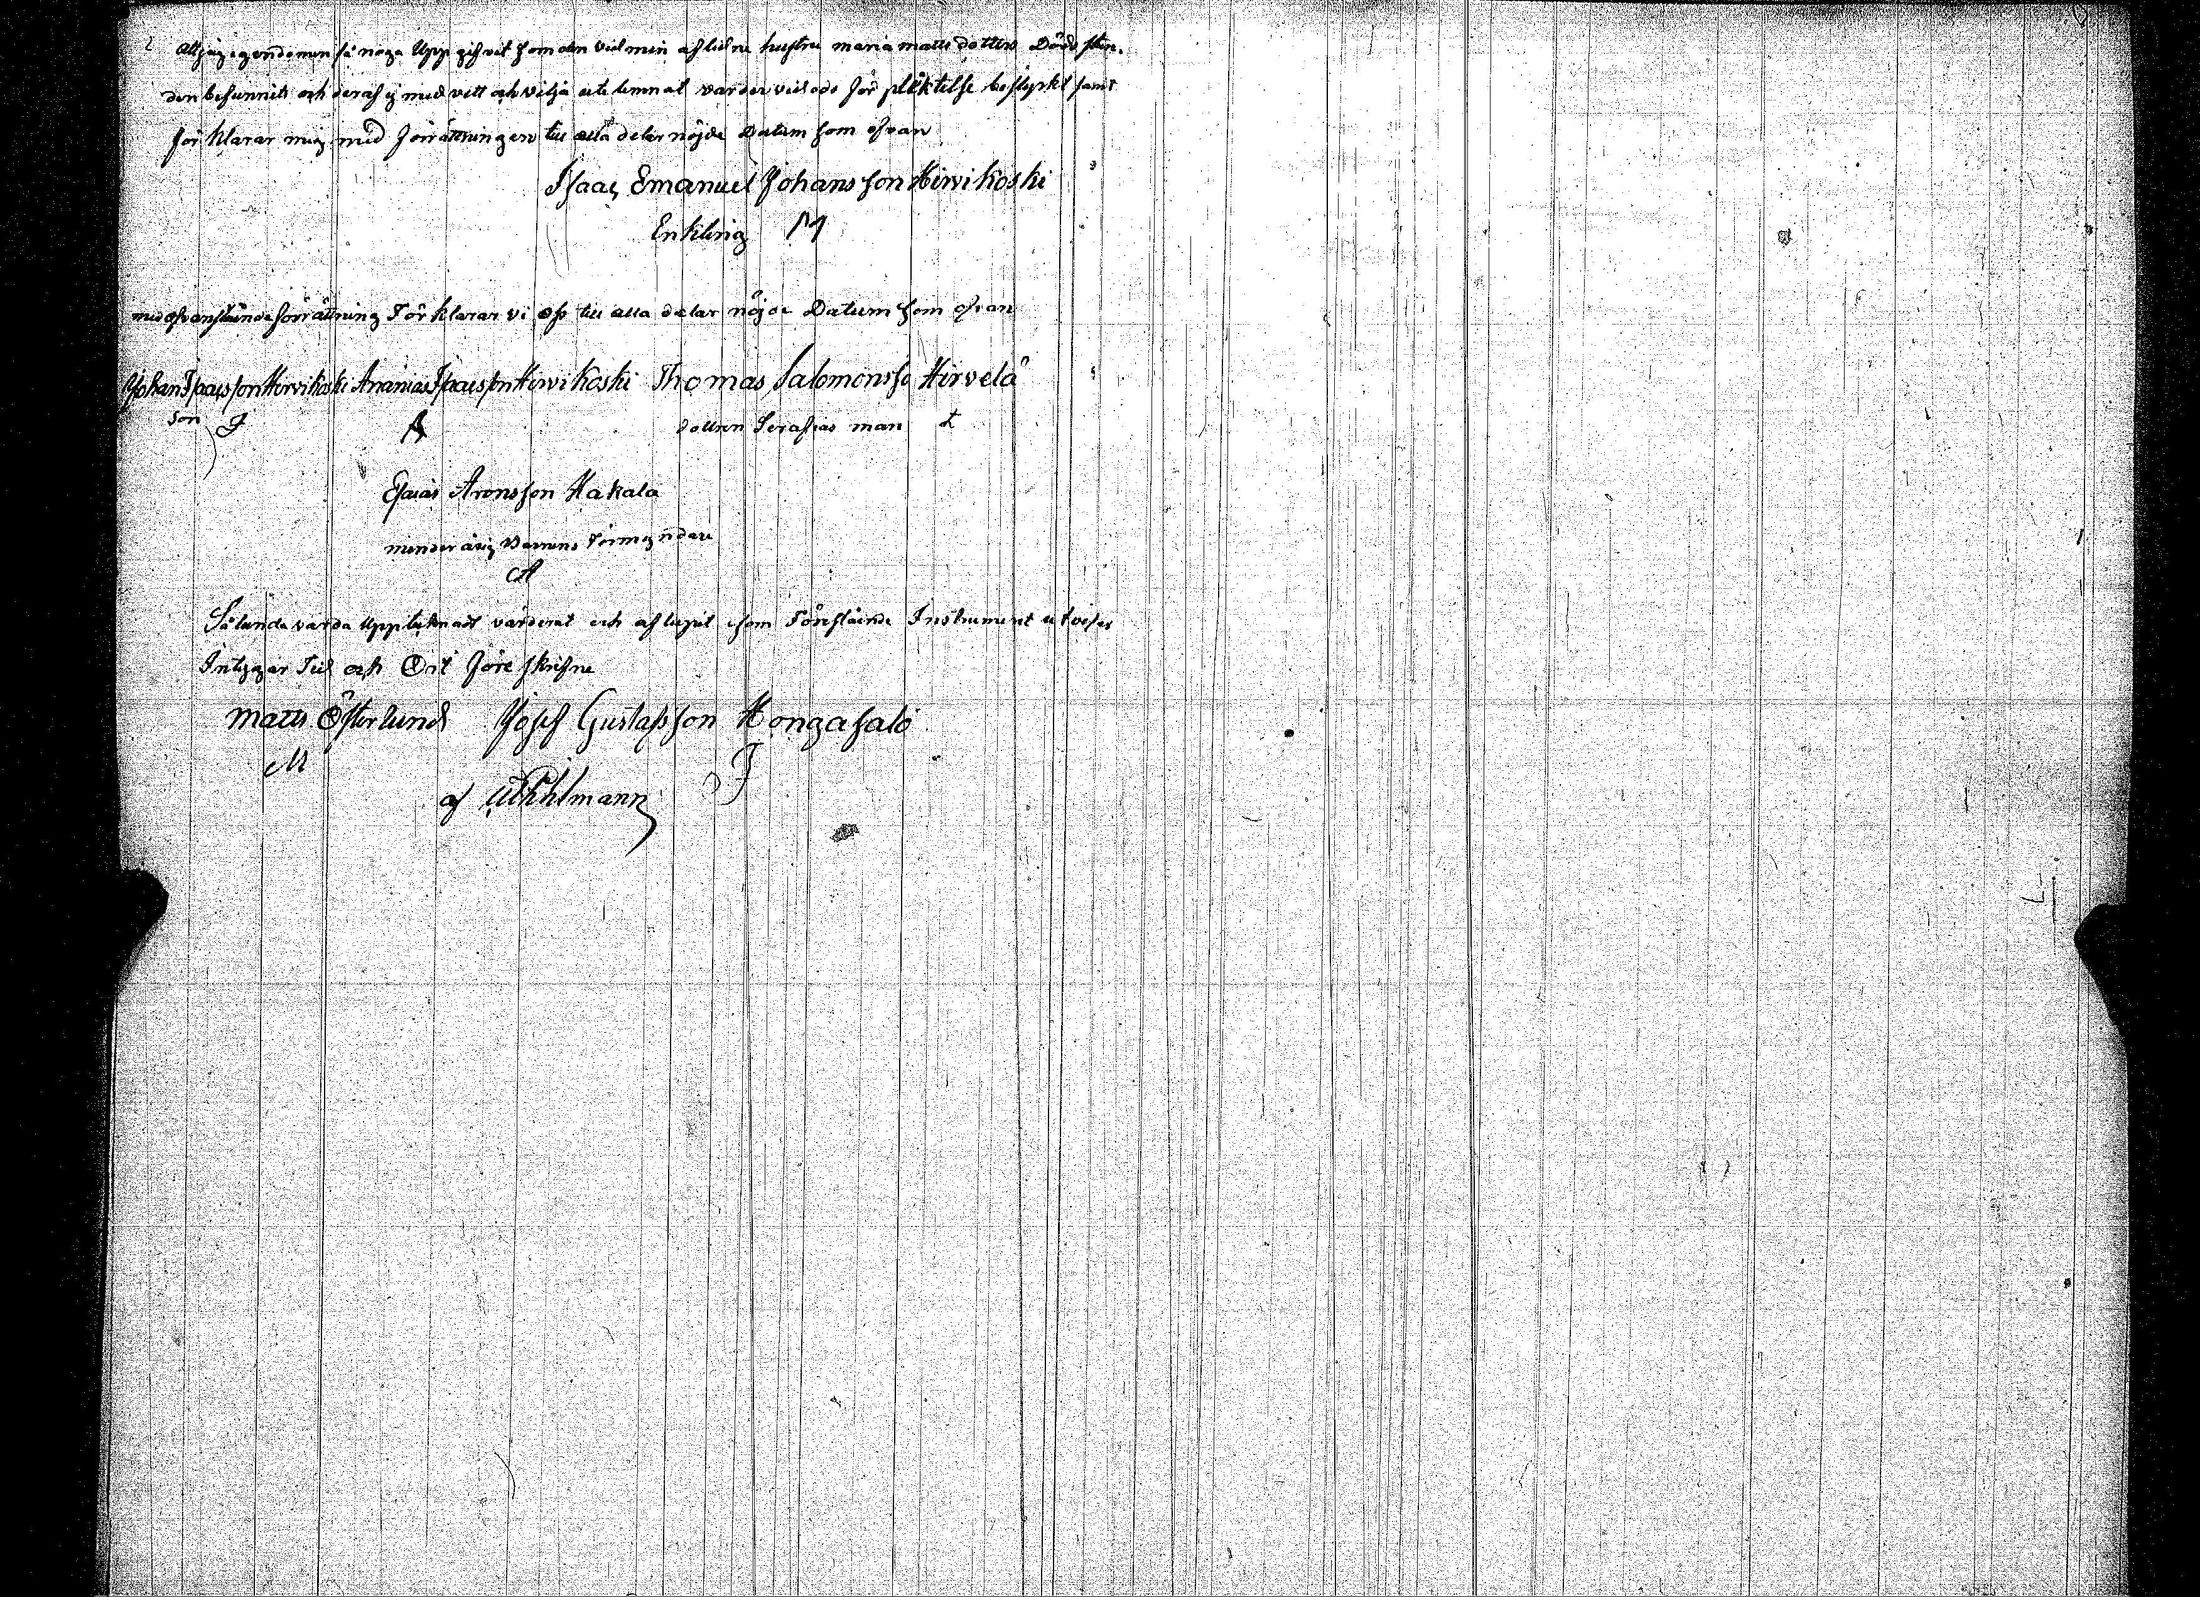 Att jag egendomen så noga Uppgifvit som den vid min aflidne hustru maria matts dotters Död sstun,
den befunnits och deraf ej med vett och vilja utelemnat varder vid eds förpliktelse bestyrkt samt
för klarar mig med förrättningen till alla delar nöjde Datum som ofvan
Isaac Emanuel Johansson Hirvikoski
Enkling M
med ofvanstående förrättning Förklarar vi oss till alla delar nöjde Datum som ofvan
Johan Isacsson Hirvikoski Ananias Isacsson Hirvikoski Thomas Salomonsso Hirvelä
son J A dottren Serafias man
Esaias Aronsson Hakala
minderårig Barnens Förmyndare
A
Sålunda varda Uppteknadt värderat och aflupit som Förestående Instrument utvises
Intygar Tid och Ort före skrifne
Matts Österlund Josef Gustafsson Hongasalo
M J
af